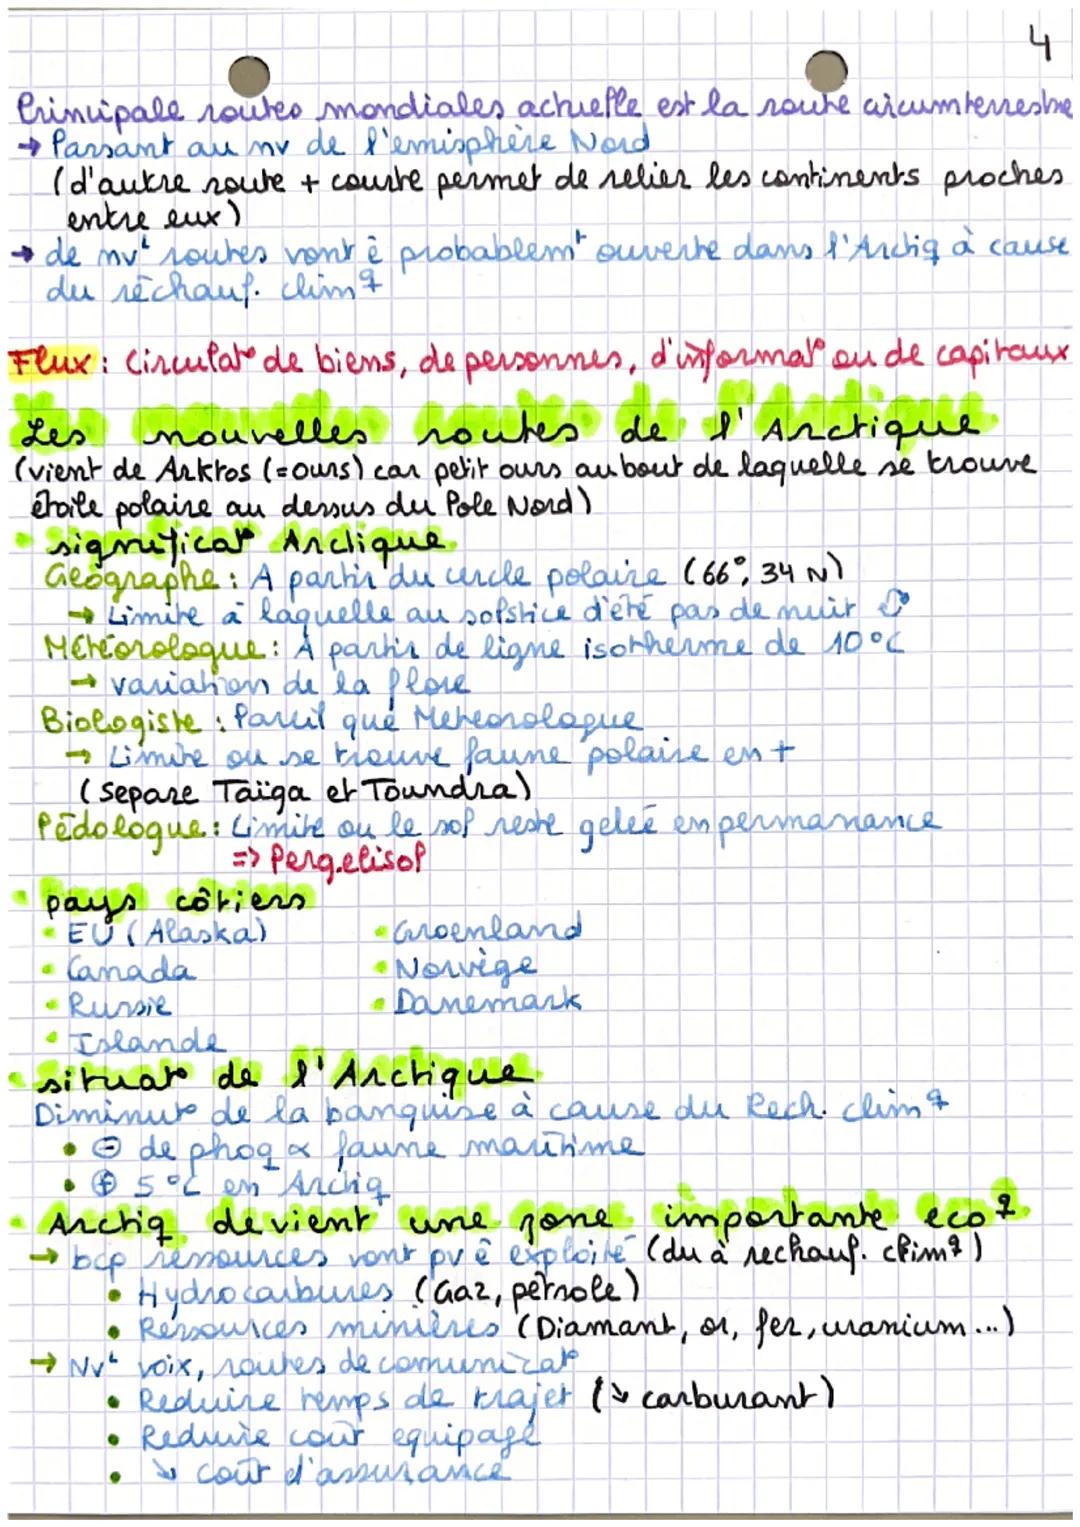 4
Principale routes mondiales actuelle est la route circumterrestre
→ Passant au nv de l'emisphère Nord
(d'autre route + courte permet de relier les continents proches
entre eux)
→ de nvˡ routes vont ê probablemᵗ ouverte dans l'Arctiq à cause
du réchauf. climq
Flux : Circulat° de biens, de personnes, d'informat° ou de capitaux
Les nouvelles routes de l'Arctique
(vient de Arktos (=ours) car petit ours au bout de laquelle se trouve
étoile polaire au dessus du Pole Nord)
• significat° Arctique
Géographe : A partir du cercle polaire (66°, 34 N)
→ Limite à laquelle au solstice d'été pas de nuit
Météorologue : A partir de ligne isotherme de 10°C
→ variation de la flore
Biologiste : Pareil que Meteorologue
→ Limite ou se trouve faune polaire en +
(separe Taïga et Toundra)
Pédologue : Limite ou le sol reste gelée en permanance
=> Pergelisol
• pays côtiers
• EU (Alaska) • Groenland
• Canada • Norvège
• Russie • Danemark
• Islande
• situat° de l'Arctique
Diminut° de la banquise à cause du Rech. climq
• ⊖ de phoq & faune maritime
• ⊕ 5°C en Arctiq
• Arctiq devient une zone importante ecoq
→ bcp ressources vont pv ê exploité (du à rechauf. climq)
• Hydrocarbures (Gaz, pétrole)
• Ressources minières (Diamant, or, fer, uranium...)
→ Nvˡ voix, routes de comunicat°
• Reduire temps de trajet (↘ carburant)
• Reduire coût equipage
• ↘ coût d'assurance